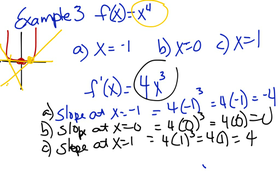 Example 3 f(x) = x⁴
a) x = -1 b) x = 0 c) x = 1
f'(x) = 4x³
a) Slope at x = -1 = 4(-1)³ = 4(-1) = -4
b) Slope at x = 0 = 4(0)³ = 4(0) = 0
c) Slope at x = 1 = 4(1)³ = 4(1) = 4